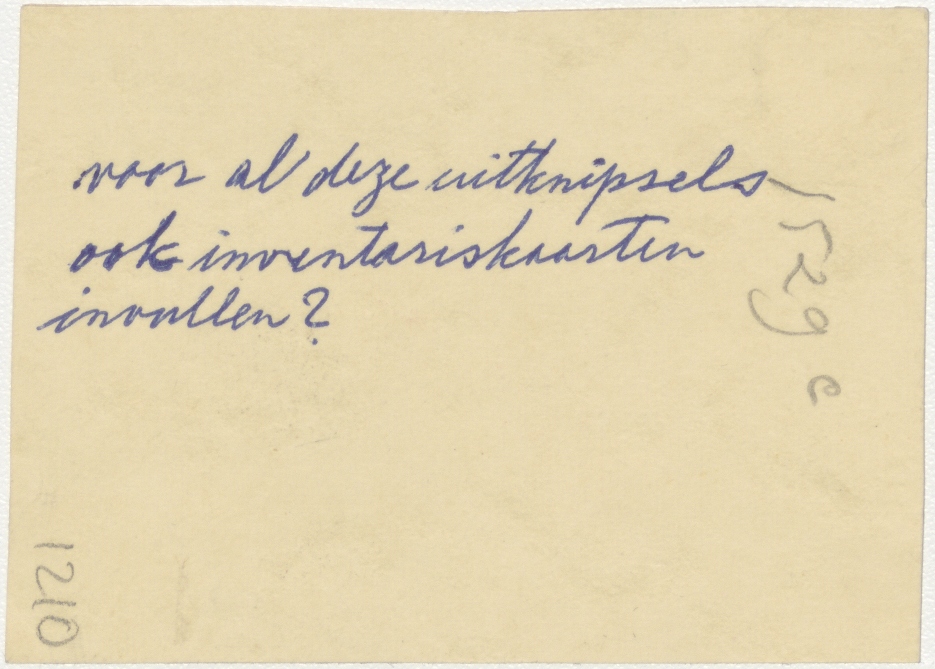 voor al deze uitknipsels
ook inventariskaarten
invullen?
1529 e
1210